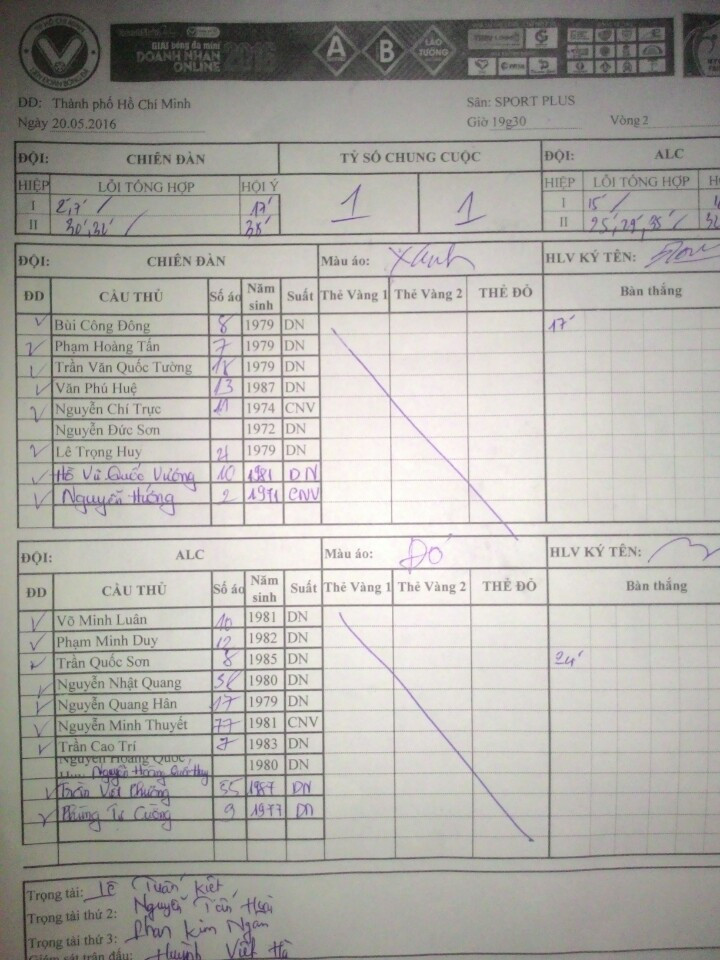 TP HỒ CHÍ MINH
LIÊN ĐOÀN BÓNG ĐÁ
GIẢI bóng đá mini
DOANH NHÂN 2016
ONLINE
A B LÀO TƯỞNG
DĐ: Thành phố Hồ Chí Minh Sân: SPORT PLUS
Ngày 20.05.2016 Giờ 19g30 Vòng 2
ĐỘI: CHIÊN ĐÀN TỶ SỐ CHUNG CUỘC ĐỘI: ALC
HIỆP LỖI TỔNG HỢP HỘI Ý 1 1 HIỆP LỖI TỔNG HỢP
I 2,7' / 17' I 15' /
II 30', 32' / 38' II 25', 29', 35' /
ĐỘI: CHIÊN ĐÀN Màu áo: Xanh HLV KÝ TÊN:
ĐD CẦU THỦ Số áo Năm sinh Suất Thẻ Vàng 1 Thẻ Vàng 2 THẺ ĐỎ Bàn thắng
Bùi Công Đông 8 1979 DN 17'
Phạm Hoàng Tấn 7 1979 DN
Trần Văn Quốc Tường 1979 DN
Văn Phú Huệ 13 1987 DN
Nguyễn Chí Trực 11 1974 CNV
Nguyễn Đức Sơn 1972 DN
Lê Trọng Huy 1979 DN
Hồ Vũ Quốc Vương 10 1981 DN
Nguyễn Hướng 2 1971 CNV
ĐỘI: ALC Màu áo: Đỏ HLV KÝ TÊN:
ĐD CẦU THỦ Số áo Năm sinh Suất Thẻ Vàng 1 Thẻ Vàng 2 THẺ ĐỎ Bàn thắng
Võ Minh Luân 10 1981 DN
Phạm Minh Duy 12 1982 DN
Trần Quốc Sơn 8 1985 DN 24'
Nguyễn Nhật Quang 1980 DN
Nguyễn Quang Hân 17 1979 DN
Nguyễn Minh Thuyết 77 1981 CNV
Trần Cao Trí 7 1983 DN
Nguyễn Hoàng Quốc 1980 DN
Nguyễn Hoàng Quốc Huy
Trần Việt Phương 55 1987 DN
Phùng Tự Cường 9 1977 DN
Trọng tài: Lê Tuấn Kiệt
Trọng tài thứ 2: Nguyễn Tấn
Trọng tài thứ 3: Phan Kim Ngân
Giám sát trận đấu: Huỳnh Viết Hà